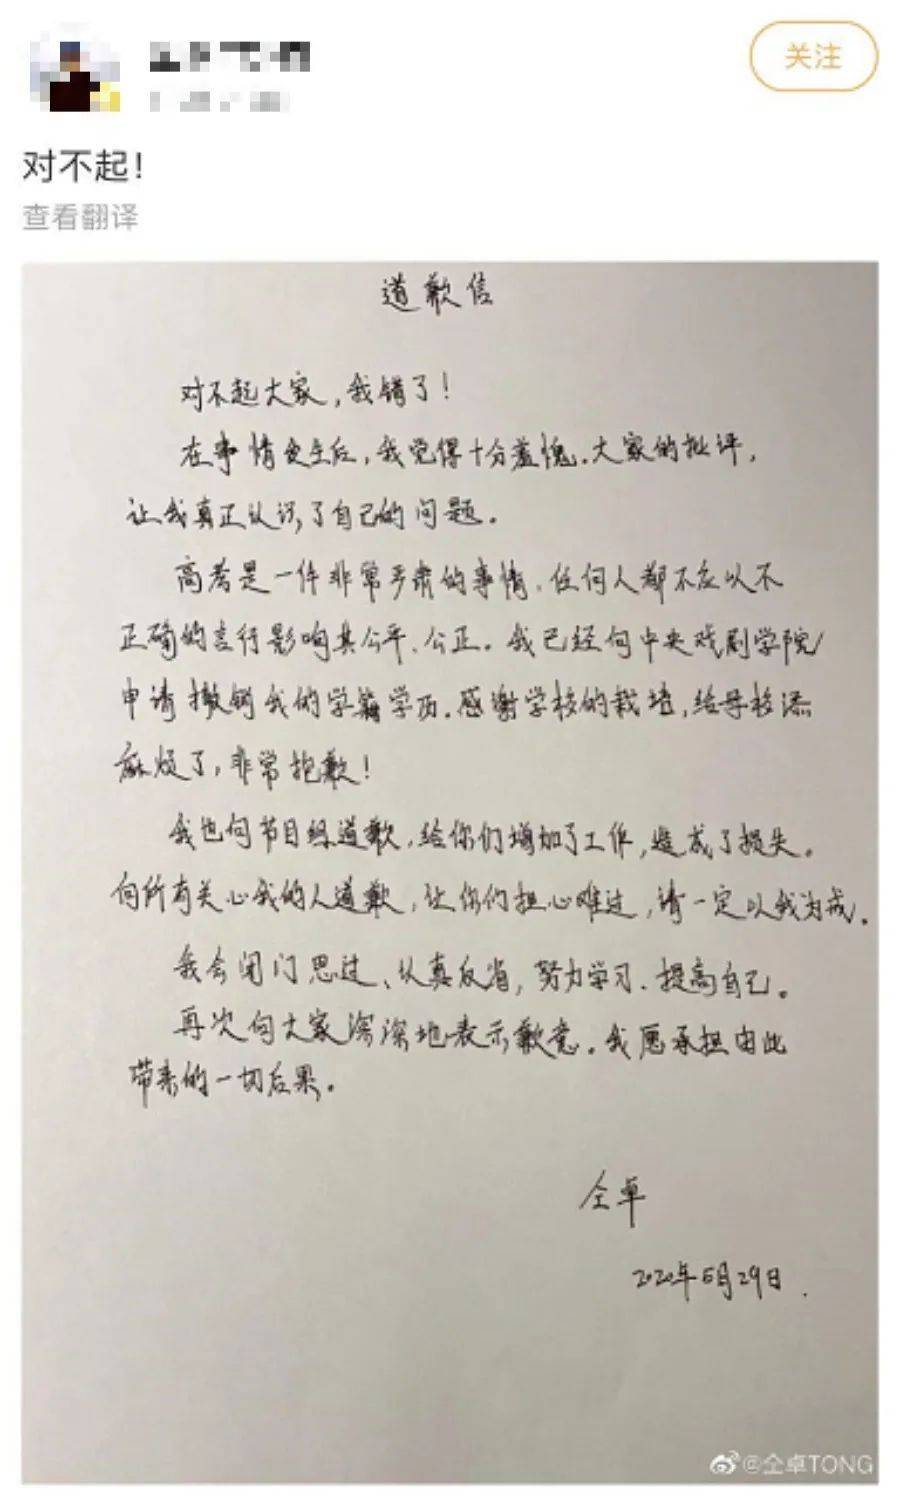 关注
对不起！
查看翻译
道歉信
对不起大家，我错了！
在事情发生后，我觉得十分羞愧.大家的批评，
让我真正认识了自己的问题。
高考是一件非常严肃的事情.任何人都不应以不
正确的言行影响其公平、公正。我已经向中央戏剧学院
申请撤销我的学籍学历.感谢学校的栽培，给母校添
麻烦了，非常抱歉！
我也向节目组道歉，给你们增加了工作，造成了损失。
向所有关心我的人道歉，让你们担心难过，请一定以我为戒.
我会闭门思过、认真反省，努力学习.提高自己。
再次向大家深深地表示歉意。我愿承担由此
带来的一切后果。
仝卓
2020年5月29日.
@仝卓TONG